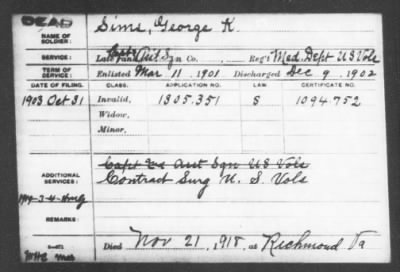 DEAD
NAME OF SOLDIER: Sims, George K.
SERVICE: Late Asst Sgn Co. Reg't Med. Dept US Vols
TERM OF SERVICE: Enlisted Mar 11, 1901 Discharged Dec 9, 1902
DATE OF FILING. CLASS. APPLICATION NO. LAW CERTIFICATE NO.
1903 Oct 31 Invalid, 1305.351 S 1094.752
Widow,
Minor,
Capt & Asst Sgn US Vols
ADDITIONAL SERVICES: Contract Surg U. S. Vols
REMARKS:
Died Nov 21, 1918, at Richmond Va